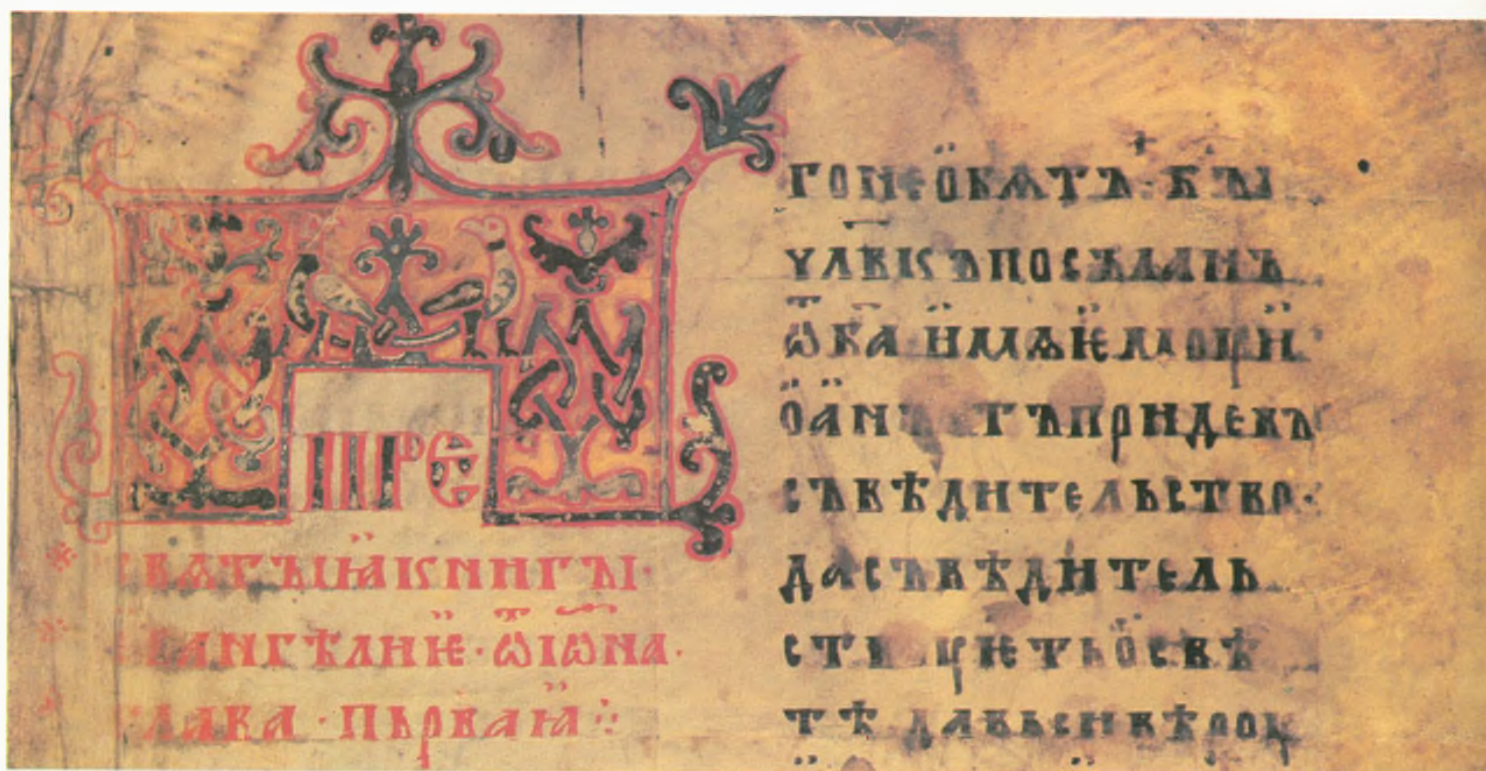 ПРѢ
свѧтъıѩ книгъı·
евангѣлиѥ · ѿ іѡна ·
глава · пьрваꙗ ⁘
го не обѧтъ · бъı
ч͠лвкъ посъланъ
ѿ б͠а имѧ ѥмоу и
оанъ тъ приде въ
съвѣдительство ·
да съвѣдитель
тѣ да вьси вѣроу